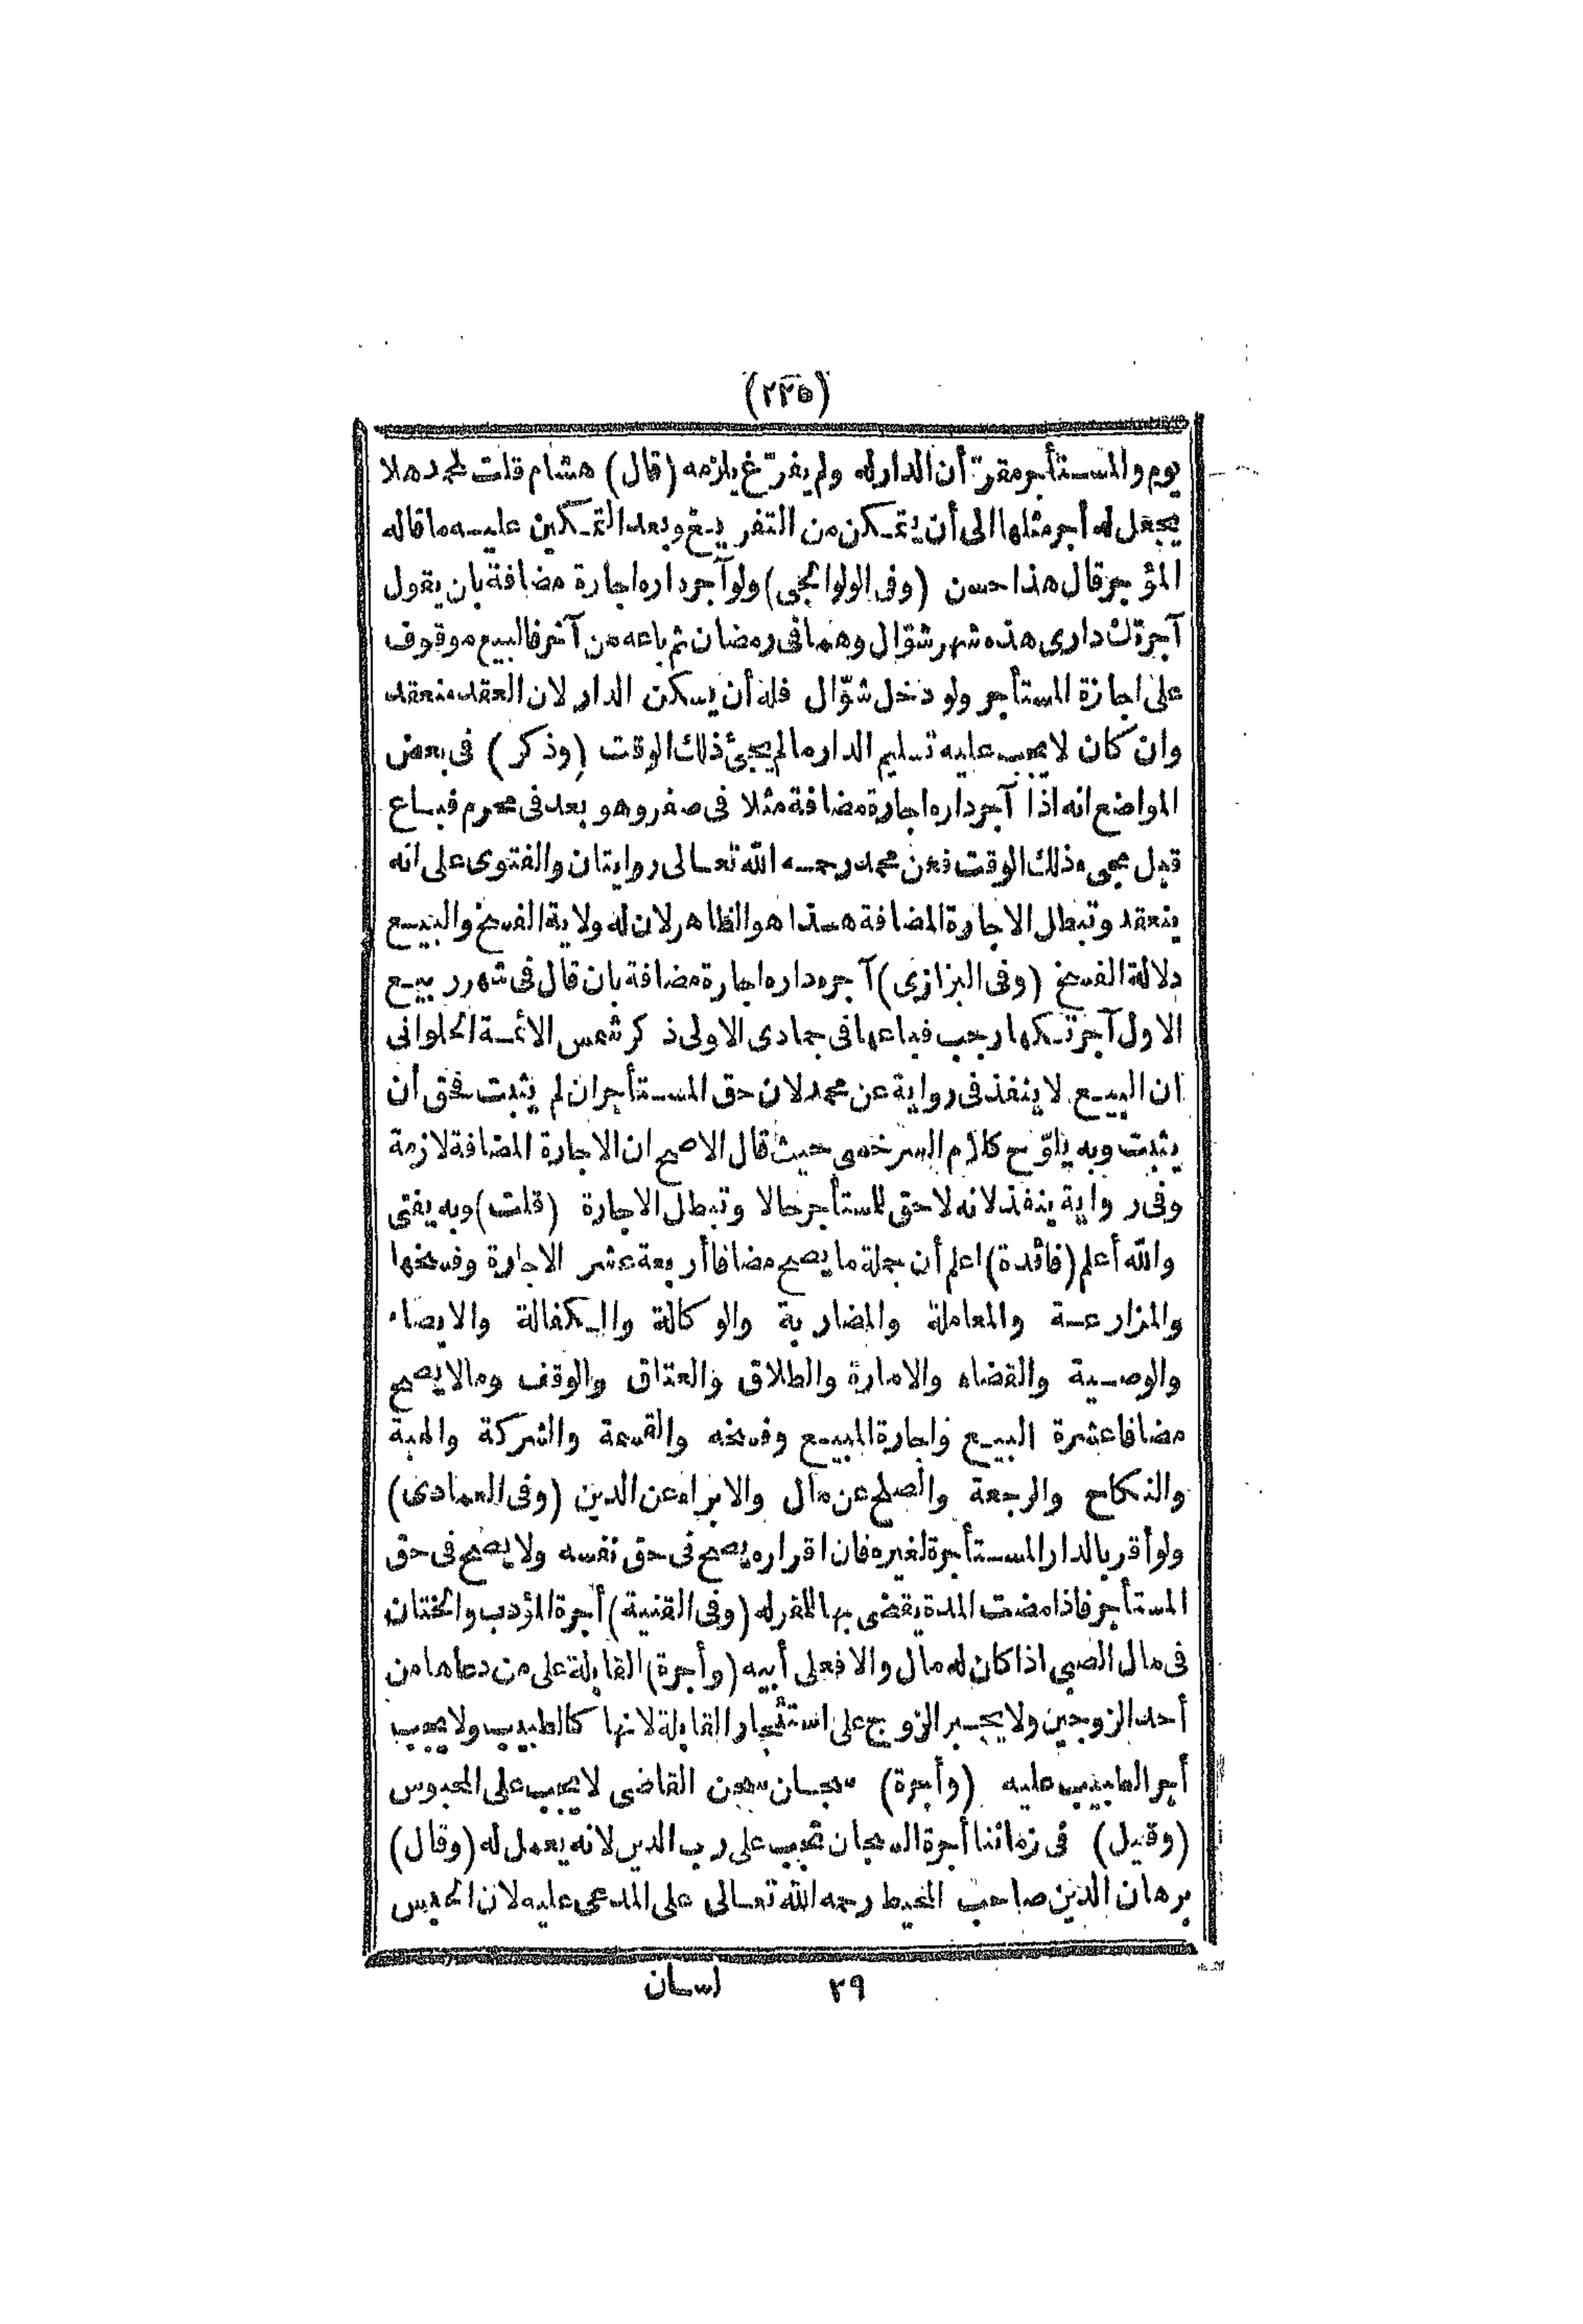 (٢٢٥)
يوم والمستأجر مقرّ أن الدار له ولم يفرّغ يلزمه (قال) هشام قلت لمحمد هلا
يجعل له أجر مثلها الى أن يتمكن من التفريغ وبعد التمكين عليه ما قاله
المؤجر قال هذا حسن (وفى الولوالجى) ولو آجر داره اجارة مضافة بان يقول
آجرتك دارى هذه شهر شوّال وهما فى رمضان ثم باعه من آخر فالبيع موقوف
على اجازة المستأجر ولو دخل شوّال فله أن يسكن الدار لان العقد منعقد
وان كان لا يجب عليه تسليم الدار ما لم يجئ ذلك الوقت (وذكر) فى بعض
المواضع انه اذا آجر داره اجارة مضافة مثلا فى صفر وهو بعد فى محرم فباع
قبل مجىء ذلك الوقت فعن محمد رحمه الله تعالى روايتان والفتوى على انه
ينعقد وتبطل الاجارة المضافة هذا هو الظاهر لان له ولاية الفسخ والبيع
دلالة الفسخ (وفى البزازى) آجره داره اجارة مضافة بان قال فى شهر ربيع
الاول آجرتكها رجب فباعها فى جمادى الاولى ذكر شمس الائمة الحلوانى
ان البيع لا ينفذ فى رواية عن محمد لان حق المستأجر ان لم يثبت فحق أن
يثبت وبه يلوّح كلام السرخسى حيث قال الاصح ان الاجارة المضافة لازمة
وفى رواية ينفذ لانه لا حق للمستأجر حالا وتبطل الاجارة (قلت) وبه يفتى
والله أعلم (فائدة) اعلم أن جملة ما يصح مضافا أربعة عشر الاجارة وفسخها
والمزارعة والمعاملة والمضاربة والوكالة والكفالة والايصاء
والوصية والقضاء والامارة والطلاق والعتاق والوقف وما لا يصح
مضافا عشرة البيع واجارة المبيع وفسخه والقسمة والشركة والهبة
والنكاح والرجعة والصلح عن مال والابراء عن الدين (وفى العمادى)
ولو أقر بالدار المستأجرة لغيره فان اقراره يصح فى حق نفسه ولا يصح فى حق
المستأجر فاذا مضت المدة يقضى بها للمقر له (وفى القنية) أجرة المؤدب والختان
فى مال الصبى اذا كان له مال والا فعلى أبيه (وأجرة) القابلة على من دعاها من
أحد الزوجين ولا يجبر الزوج على استئجار القابلة لانها كالطبيب ولا يجب
أجر الطبيب عليه (وأجرة) سجان سجن القاضى لا يجب على المحبوس
(وقيل) فى زماننا أجرة السجان تجب على رب الدين لانه يعمل له (وقال)
برهان الدين صاحب المحيط رحمه الله تعالى على المدعى عليه لان الحبس
٢٩ لسان